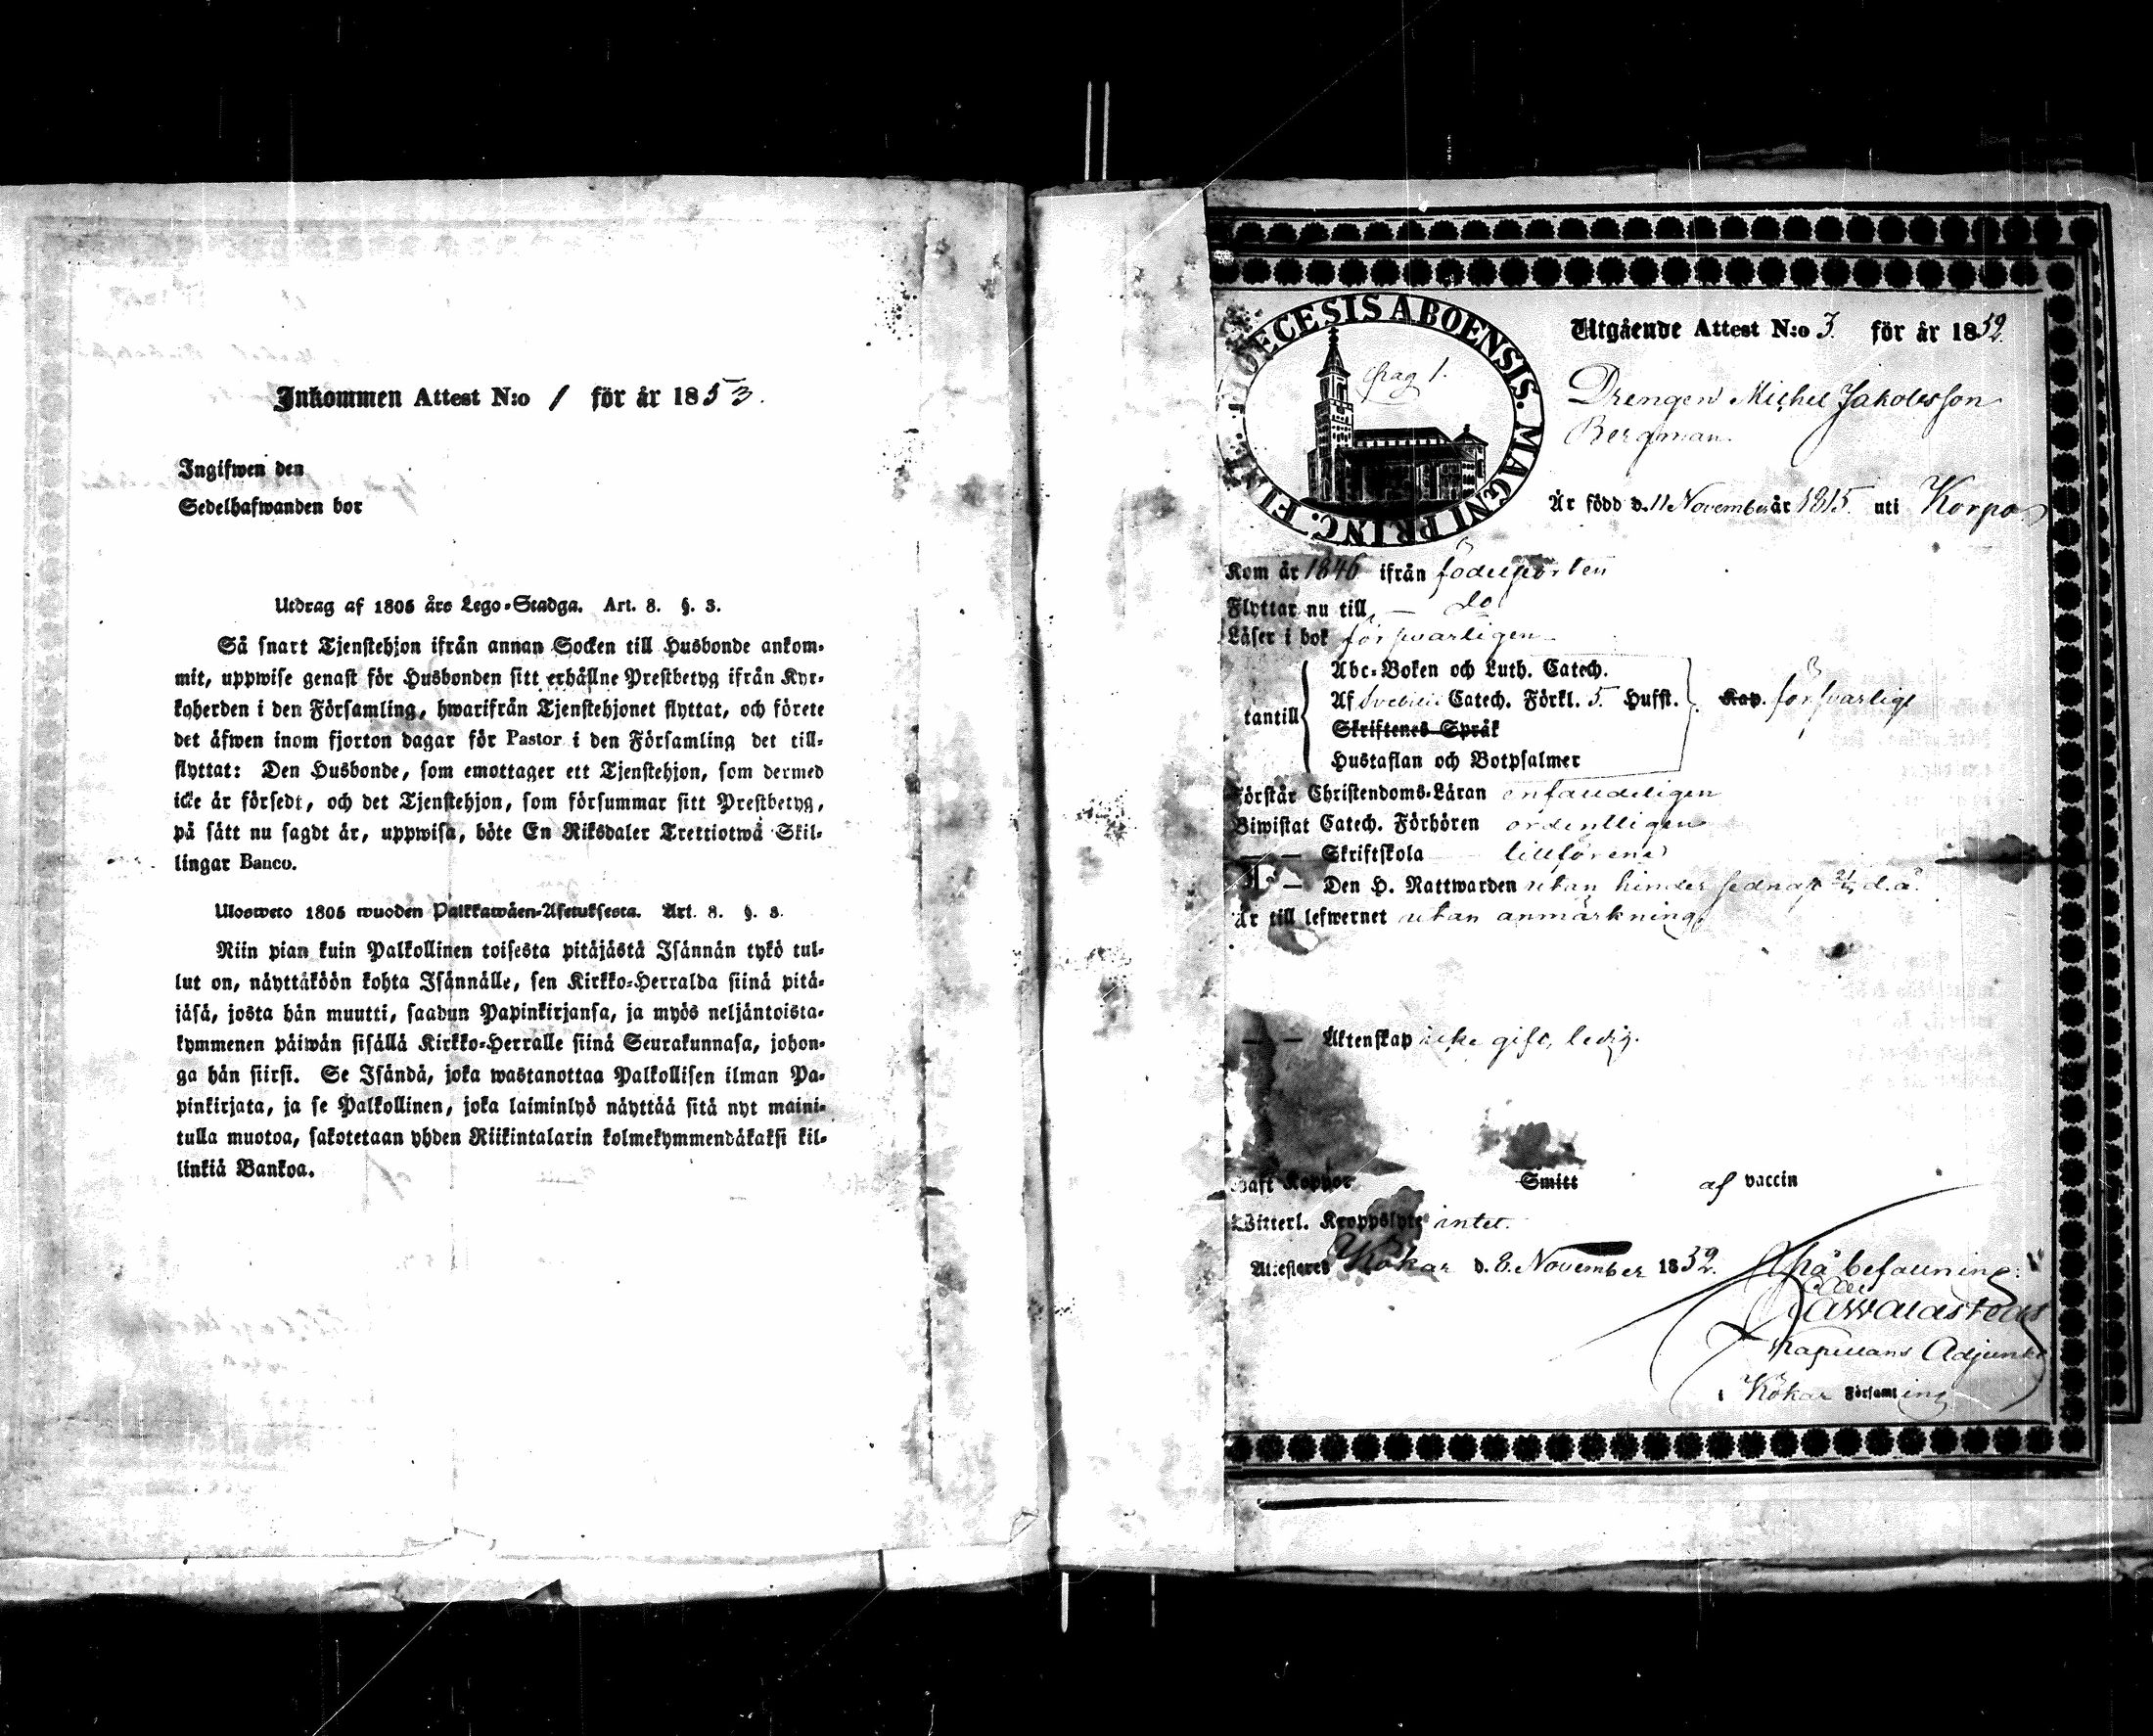 Inkommen Attest N:o 1 för år 1853.
Ingifwen den
Sedelhafwanden bor
Utdrag af 1805 års Lego-Stadga. Art. 8. §. 3.
Så snart Tjenstehjon ifrån annan Socken till Husbonde ankom-
mit, uppwise genast för Husbonden sitt erhållne Prestbetyg ifrån Kyr-
koherden i den Församling, hwarifrån Tjenstehjonet flyttat, och förete
det äfwen inom fjorton dagar för Pastor i den Församling det till-
flyttat: Den Husbonde, som emottager ett Tjenstehjon, som dermed
icke är försedt, och det Tjenstehjon, som försummar sitt Prestbetyg,
på sätt nu sagdt är, uppwisa, böte En Riksdaler Trettiotwå Skil-
lingar Banco.
Ulosweto 1805 wuoden Palkkawäen-Asetuksesta. Art. 8. §. 3.
Niin pian kuin Palkollinen toisesta pitäjästä Isännän tykö tul-
lut on, näyttäköön kohta Isännälle, sen Kirkko-Herralda siinä pitä-
jäsä, josta hän muutti, saadun Papinkirjansa, ja myös neljäntoista-
kymmenen päiwän sisällä Kirkko-Herralle siinä Seurakunnasa, johon-
ga hän siirsi. Se Isändä, joka wastanottaa Palkollisen ilman Pa-
pinkirjata, ja se Palkollinen, joka laiminlyö näyttää sitä nyt maini-
tulla muotoa, sakotetaan yhden Riikintalarin kolmekymmendäkaksi kil-
linkiä Bankoa.
DIOECESIS ABOENSIS. MAGNI PRINC. FINL.
pag 1.
Utgående Attest N:o 3. för år 1852.
Drengen Michel Jakobsson
Bergman.
Är född d. 11 November år 1815. uti Korpo
Kom år 1846 ifrån födelseorten
Flyttar nu till — do
Läser i bok försvarligen
Abc-Boken och Luth. Catech.
tantill Af Svebilii Catech. Förkl. 5. Hufst. Kap. försvarligt
Skriftenes Språk
Hustaflan och Botpsalmer
Förstår Christendoms-Läran enfaldeligen
Biwistat Catech. Förhören ordentligen
— — Skriftskola tillförene
— Den H. Nattwarden utan hinder sednast d.å.
Är till lefwernet utan anmärkning
— — Äktenskap icke gift, ledig.
Haft Koppor Smitt af vaccin
Witterl. Kroppslyte intet.
Attesteres Kökar d. 8. November 1852. På befallning:
Kapellans Adjunkt
i Kökar Församling